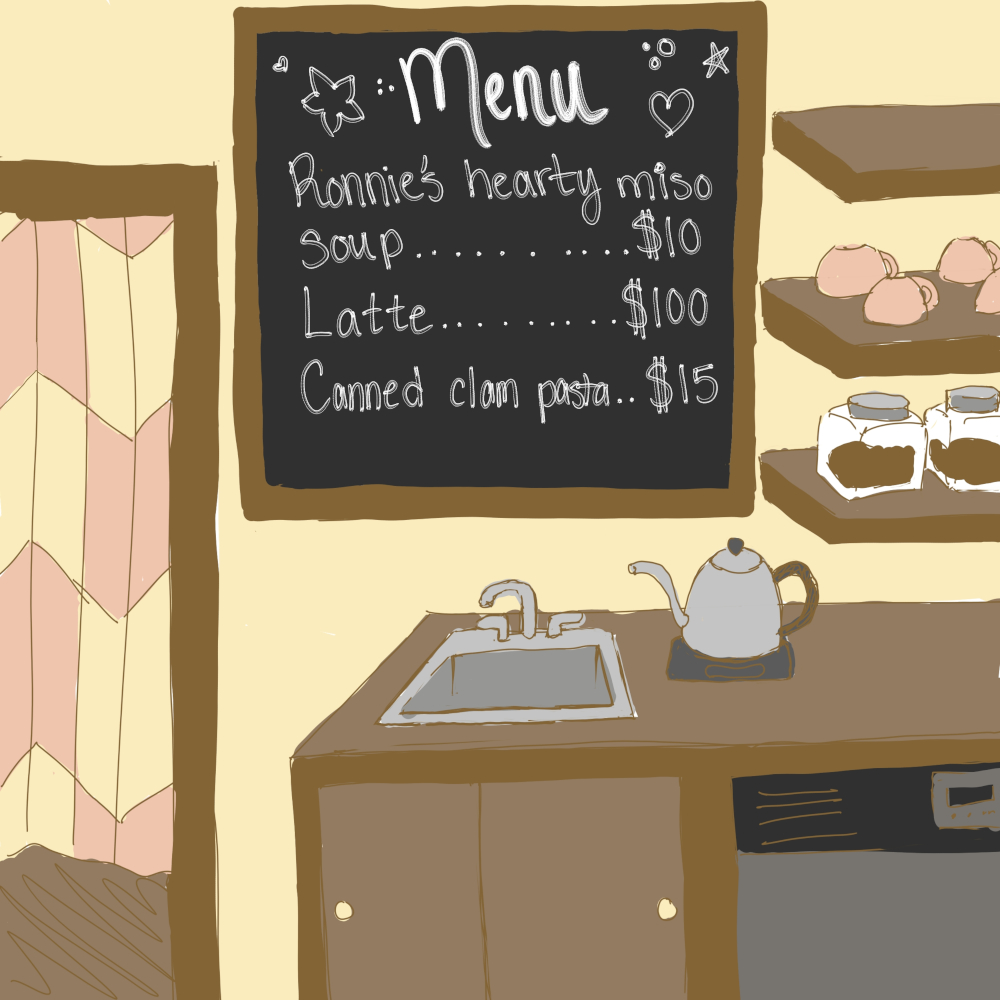 Menu
Ronnie's hearty miso
soup...... .....$10
Latte..........$100
Canned clam pasta..$15